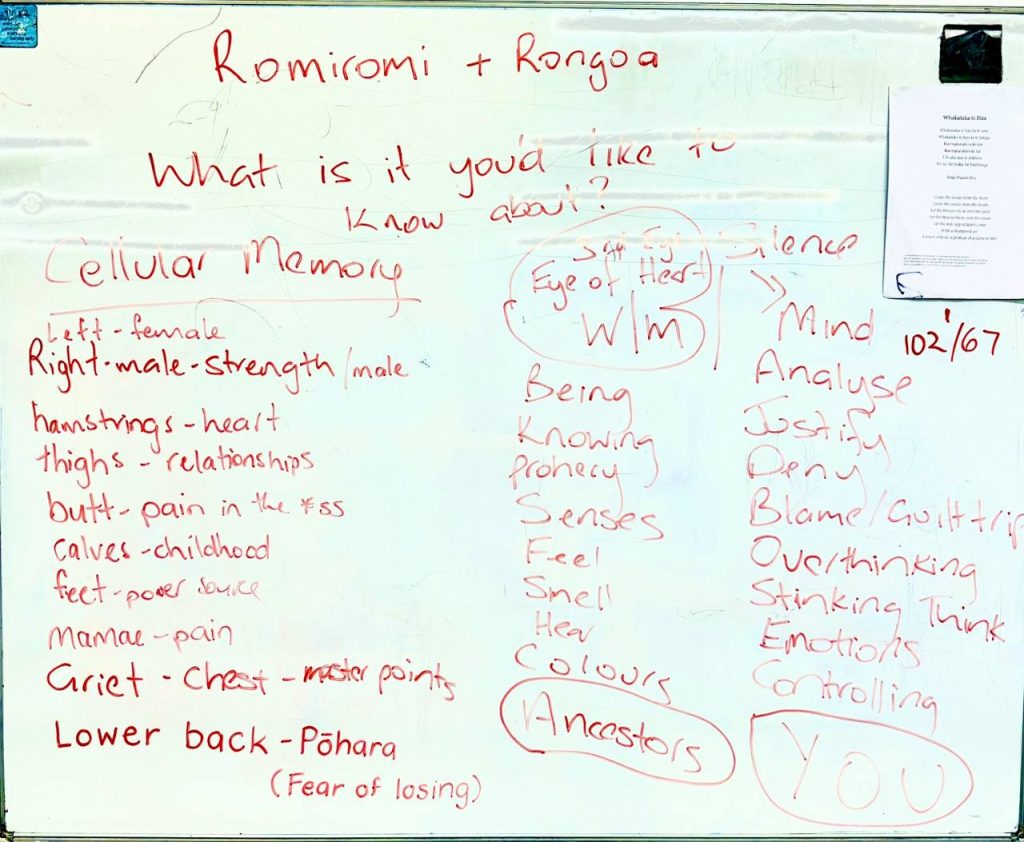 Romiromi + Rongoa
What is it you'd like to
know about?
Cellular Memory
Left - female
Right - male - strength/male
hamstrings - heart
thighs - relationships
butt - pain in the *ss
calves - childhood
feet - power source
mamae - pain
Grief - Chest - master points
Lower back - Pōhara
(Fear of losing)
Eye
Eye of Heart
W/M
Being
Knowing
Prohecy
Senses
Feel
Smell
Hear
Colours
Ancestors
Silence
Mind
Analyse
Justify
Deny
Blame/Guilt trip
Overthinking
Stinking Think
Emotions
Controlling
YOU
102/67
Whakataka te Hau